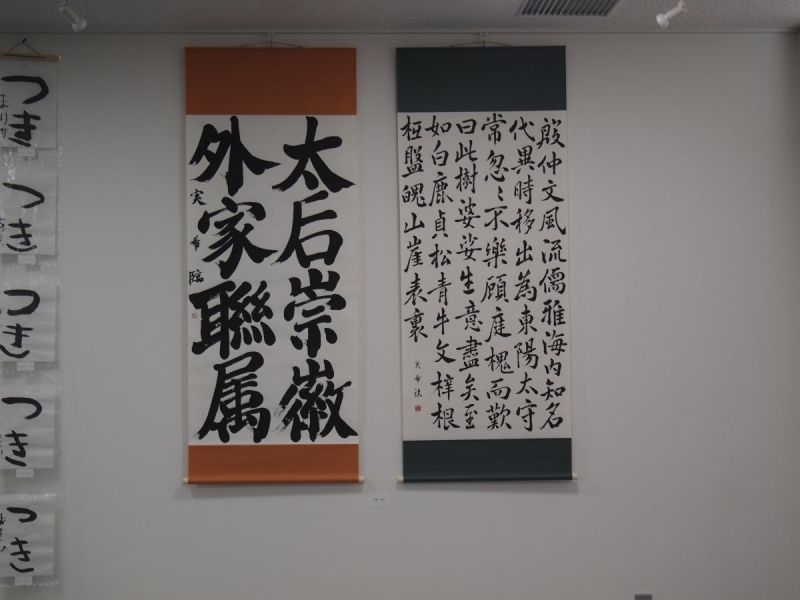 殷仲文風流儒雅海内知名
代異時移出為東陽太守
常忽〻不樂顧庭槐而歎
曰此樹婆娑生意盡矣至
如白鹿貞松青牛文梓根
柢盤魄山崖表裏
実希
太后崇徽
外家聯属
実希臨
つき
つき
つき
つき
つき